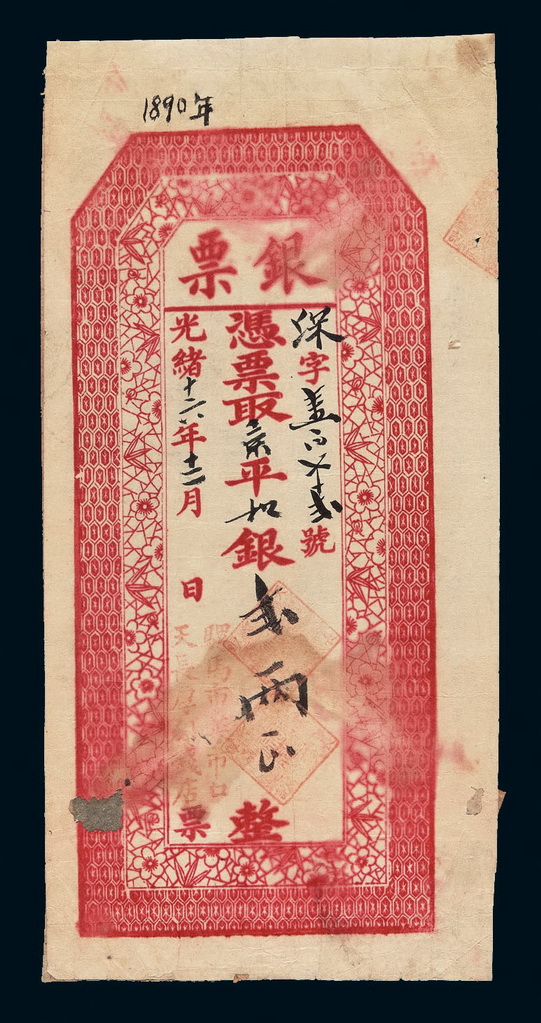 1890年
銀票
深字百十號
憑票取京平松銀貳兩正整
光緒十六年十二月 日
騾馬市市口
天長厚店票